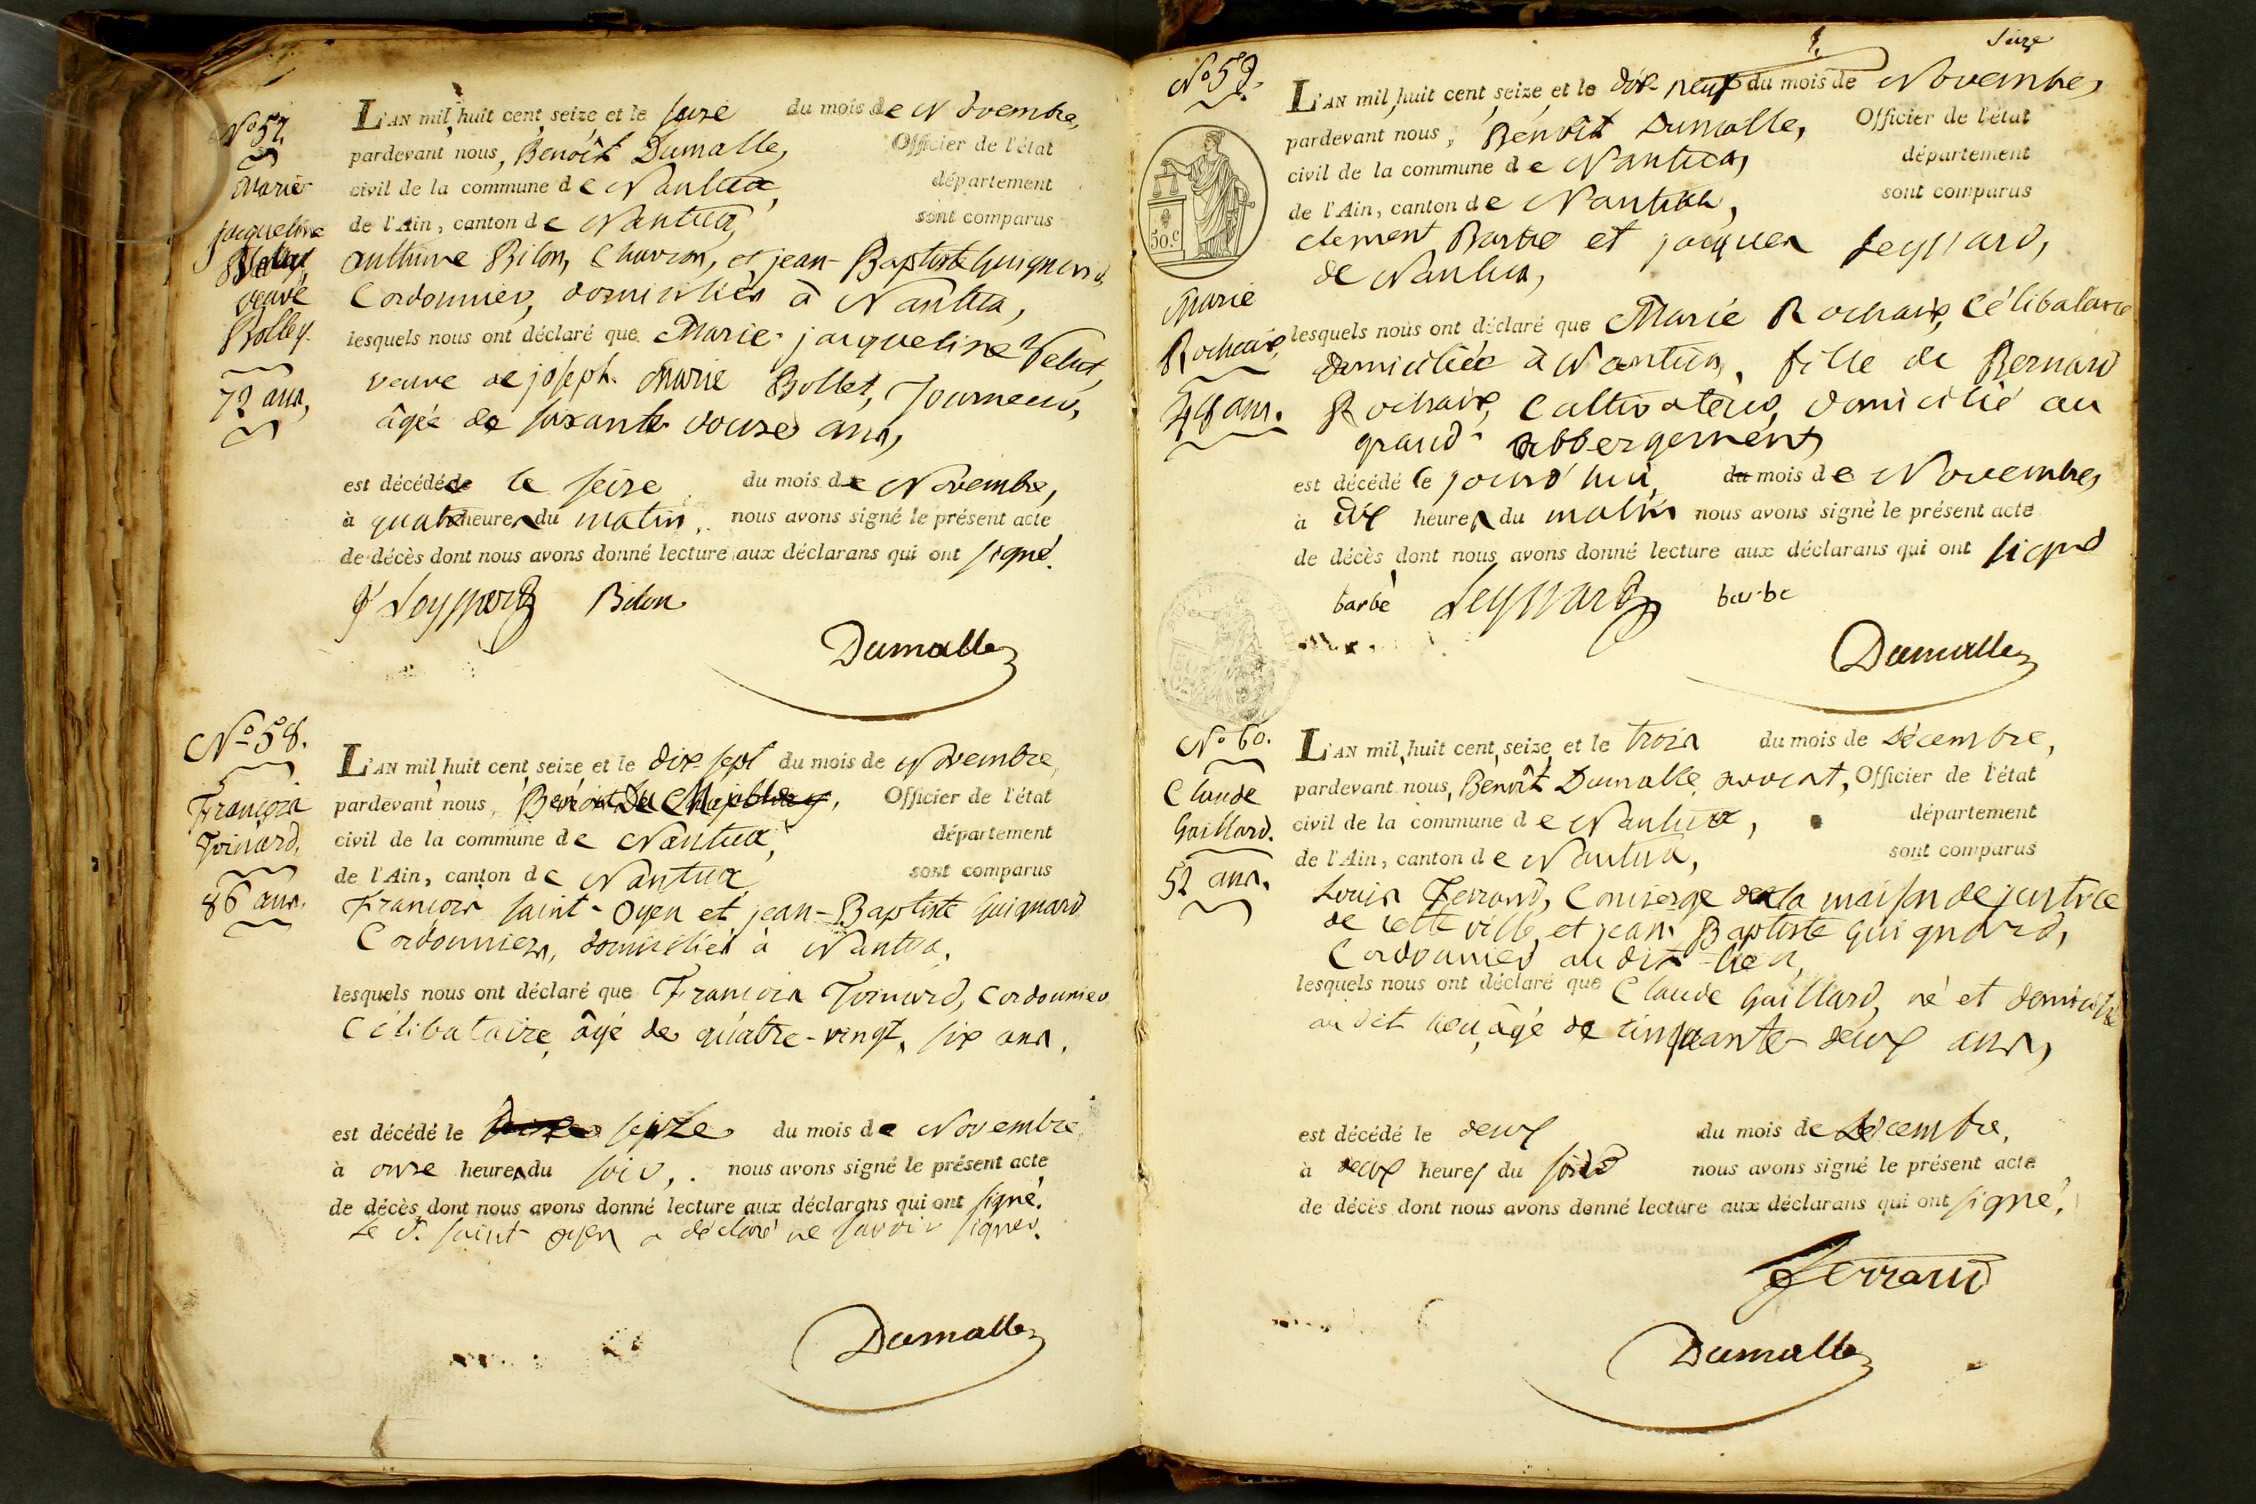 N.° 57.
Marie
jacqueline
veuve
Bolley.
72 ans,
L'AN mil huit cent seize et le seize du mois de Novembre,
pardevant nous, Benoît Dumalle, Officier de l'état
civil de la commune de Nantua, département
de l'Ain, canton de Nantua, sont comparus
anthime Bilon, Charron, et jean-Baptiste Guignard,
Cordonnier, domiciliés à Nantua,
lesquels nous ont déclaré que Marie jacqueline Velut,
veuve de joseph Marie Bollet, Journeur,
âgée de soixante douze ans,
est décédée le seize du mois de Novembre,
à quatre heures du matin, nous avons signé le présent acte
de décès dont nous avons donné lecture aux déclarans qui ont signé.
J Leyssard Bilon
Dumalle
N.° 58.
François
Toinard,
86 ans.
L'AN mil huit cent seize et le dix-sept du mois de Novembre,
pardevant nous, Officier de l'état
civil de la commune de Nantua, département
de l'Ain, canton de Nantua sont comparus
François Saint-Oyen et jean-Baptiste Guignard
Cordonniers, domiciliés à Nantua,
lesquels nous ont déclaré que François Toinard, Cordonnier
Célibataire, âgé de quatre-vingt, six ans,
est décédé le seize du mois de Novembre
à onze heures du soir, nous avons signé le présent acte
de décès dont nous avons donné lecture aux déclarans qui ont signé.
Le S.r Saint-Oyen a déclaré ne savoir signer.
Dumalle
Seize
N.° 59.
50.c
Marie
Rochaix,
48 ans.
L'AN mil huit cent seize et le dix-neuf du mois de Novembre,
pardevant nous, Benoît Dumalle, Officier de l'état
civil de la commune de Nantua, département
de l'Ain, canton de Nantua, sont comparus
clement Barbe et jacques Leyssard,
de Nantua,
lesquels nous ont déclaré que Marie Rochaix, Célibataire
domiciliée à Nantua, fille de Bernard
Rochaix, Cultivateur, domicilié au
grand abbergement,
est décédé le jourd'hui, du mois de Novembre,
à dix heures du matin nous avons signé le présent acte
de décès dont nous avons donné lecture aux déclarans qui ont signé
barbe Leyssard barbe
Dumalle
N.° 60.
Claude
Gaillard.
52 ans.
L'AN mil huit cent seize et le trois du mois de Décembre,
pardevant nous, Benoît Dumalle avocat, Officier de l'état
civil de la commune de Nantua, département
de l'Ain, canton de Nantua, sont comparus
Louis Ferrand, Concierge de la maison de justice
de cette ville, et jean Baptiste Guignard,
Cordonnier au dit lieu,
lesquels nous ont déclaré que Claude Gaillard, né et domicilié
au dit lieu, âgé de cinquante-deux ans,
est décédé le deux du mois de Décembre,
à deux heures du soir nous avons signé le présent acte
de décès dont nous avons donné lecture aux déclarans qui ont signé.
Ferrand
Dumalle